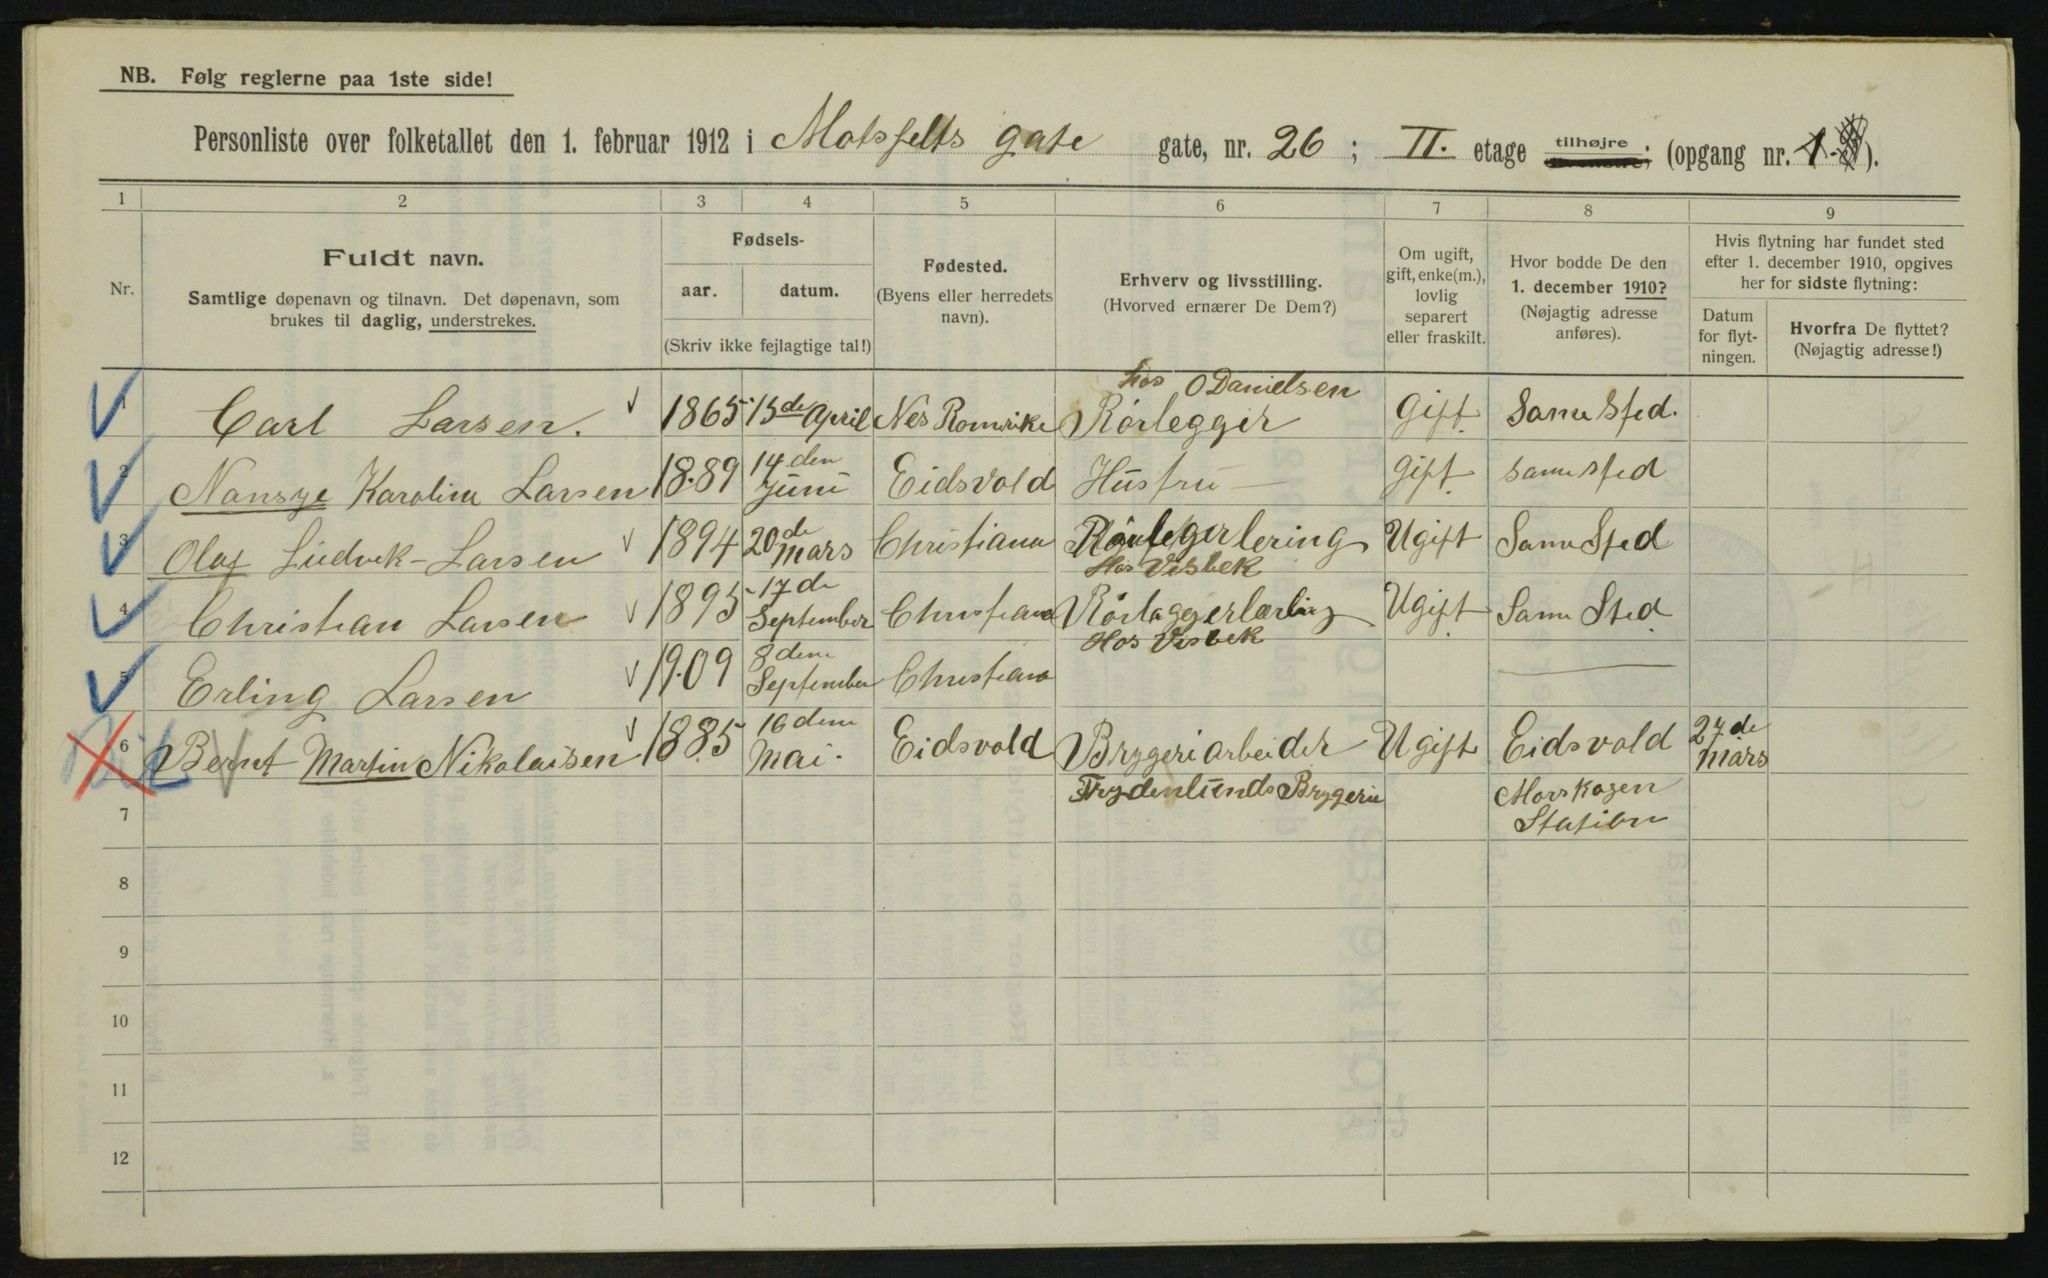 NB. Følg reglerne paa 1ste side!
Personliste over folketallet den 1. februar 1912 i Motsfelts gate gate, nr. 26; II. etage tilhøjre (opgang nr. 1.).
1 2 3 4 5 6 7 8 9
Nr.
Fuldt navn.
Samtlige døpenavn og tilnavn. Det døpenavn, som
brukes til daglig, understrekes.
Fødsels-
aar. datum.
(Skriv ikke fejlagtige tal!)
Fødested.
(Byens eller herredets
navn).
Erhverv og livsstilling.
(Hvorved ernærer De Dem?)
Om ugift,
gift, enke(m.),
lovlig
separert
eller fraskilt.
Hvor bodde De den
1. december 1910?
(Nøjagtig adresse
anføres).
Hvis flytning har fundet sted
efter 1. december 1910, opgives
her for sidste flytning:
Datum
for flyt-
ningen.
Hvorfra De flyttet?
(Nøjagtig adresse!)
hos O Danielsen
1 Carl Larsen. 1865 15de April Nes Romrike Rörlegger Gift Samu Sted.
2 Nansye Karoline Larsen 1889 14 den Juni Eidsvold Hustru Gift samu sted
3 Olaf Ludvek Larsen 1894 20de Mars Christiana Rörlegerlering Ugift Samu Sted
Hos Visbek
4 Christian Larsen 1895 17 de September Christiana Rörlaggerlærling Ugift Samu Sted
Hos Visbek
5 Erling Larsen 1909 8 dem September Christiana
6 Bernt Martin Nikolaisen 1885 16 dem Mai. Eidsvold Bryggeriarbeider Ugift Eidsvold 27 de Mars
7 Frydenlunds Bryggerie Morskogen
Station
8
9
10
11
12